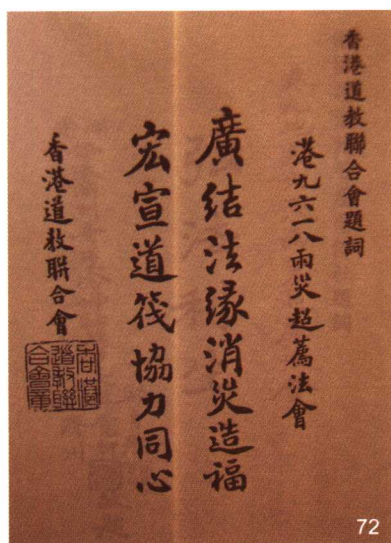 香港道教聯合會題詞
港九六一八雨災超薦法會
廣結法緣消災造福
宏宣道筏協力同心
香港道教聯合會
香港
道教聯
合會章
72